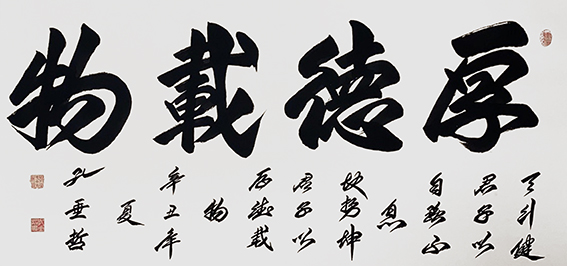 厚德載物
天行健
君子以
自强不
息
地势坤
君子以
厚德載
物
辛丑年
夏
孔垂哲